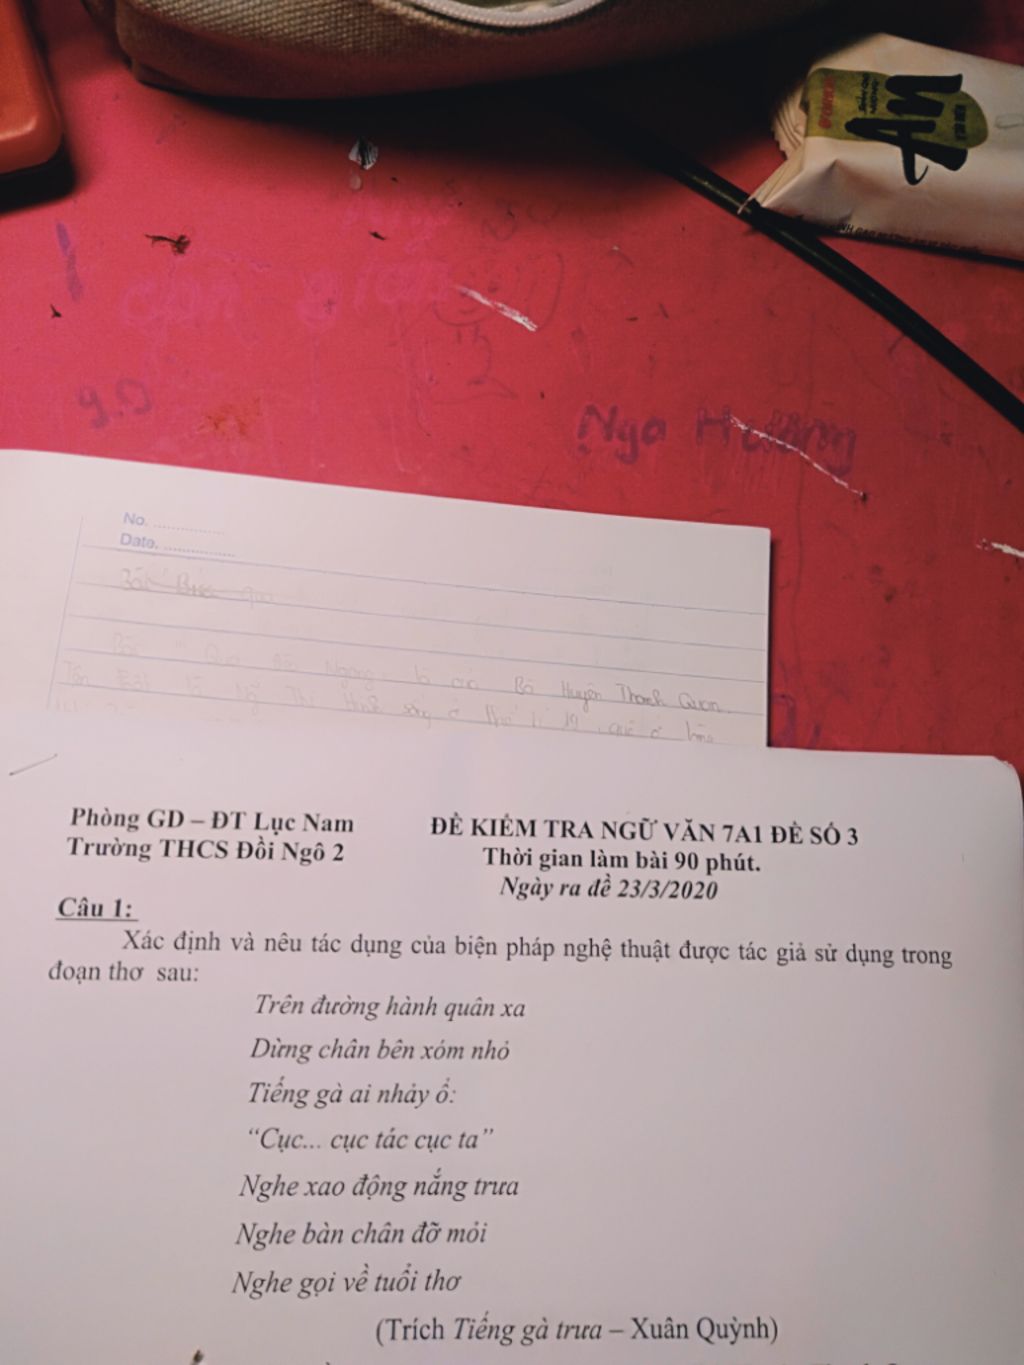 An
Ngo Hường
No. ...............
Date. ...............
Bà Huyện Thanh Quan.
Phòng GD – ĐT Lục Nam
Trường THCS Đồi Ngô 2
ĐỀ KIỂM TRA NGỮ VĂN 7A1 ĐỀ SỐ 3
Thời gian làm bài 90 phút.
Ngày ra đề 23/3/2020
Câu 1:
Xác định và nêu tác dụng của biện pháp nghệ thuật được tác giả sử dụng trong
đoạn thơ sau:
Trên đường hành quân xa
Dừng chân bên xóm nhỏ
Tiếng gà ai nhảy ổ:
“Cục... cục tác cục ta”
Nghe xao động nắng trưa
Nghe bàn chân đỡ mỏi
Nghe gọi về tuổi thơ
(Trích Tiếng gà trưa – Xuân Quỳnh)